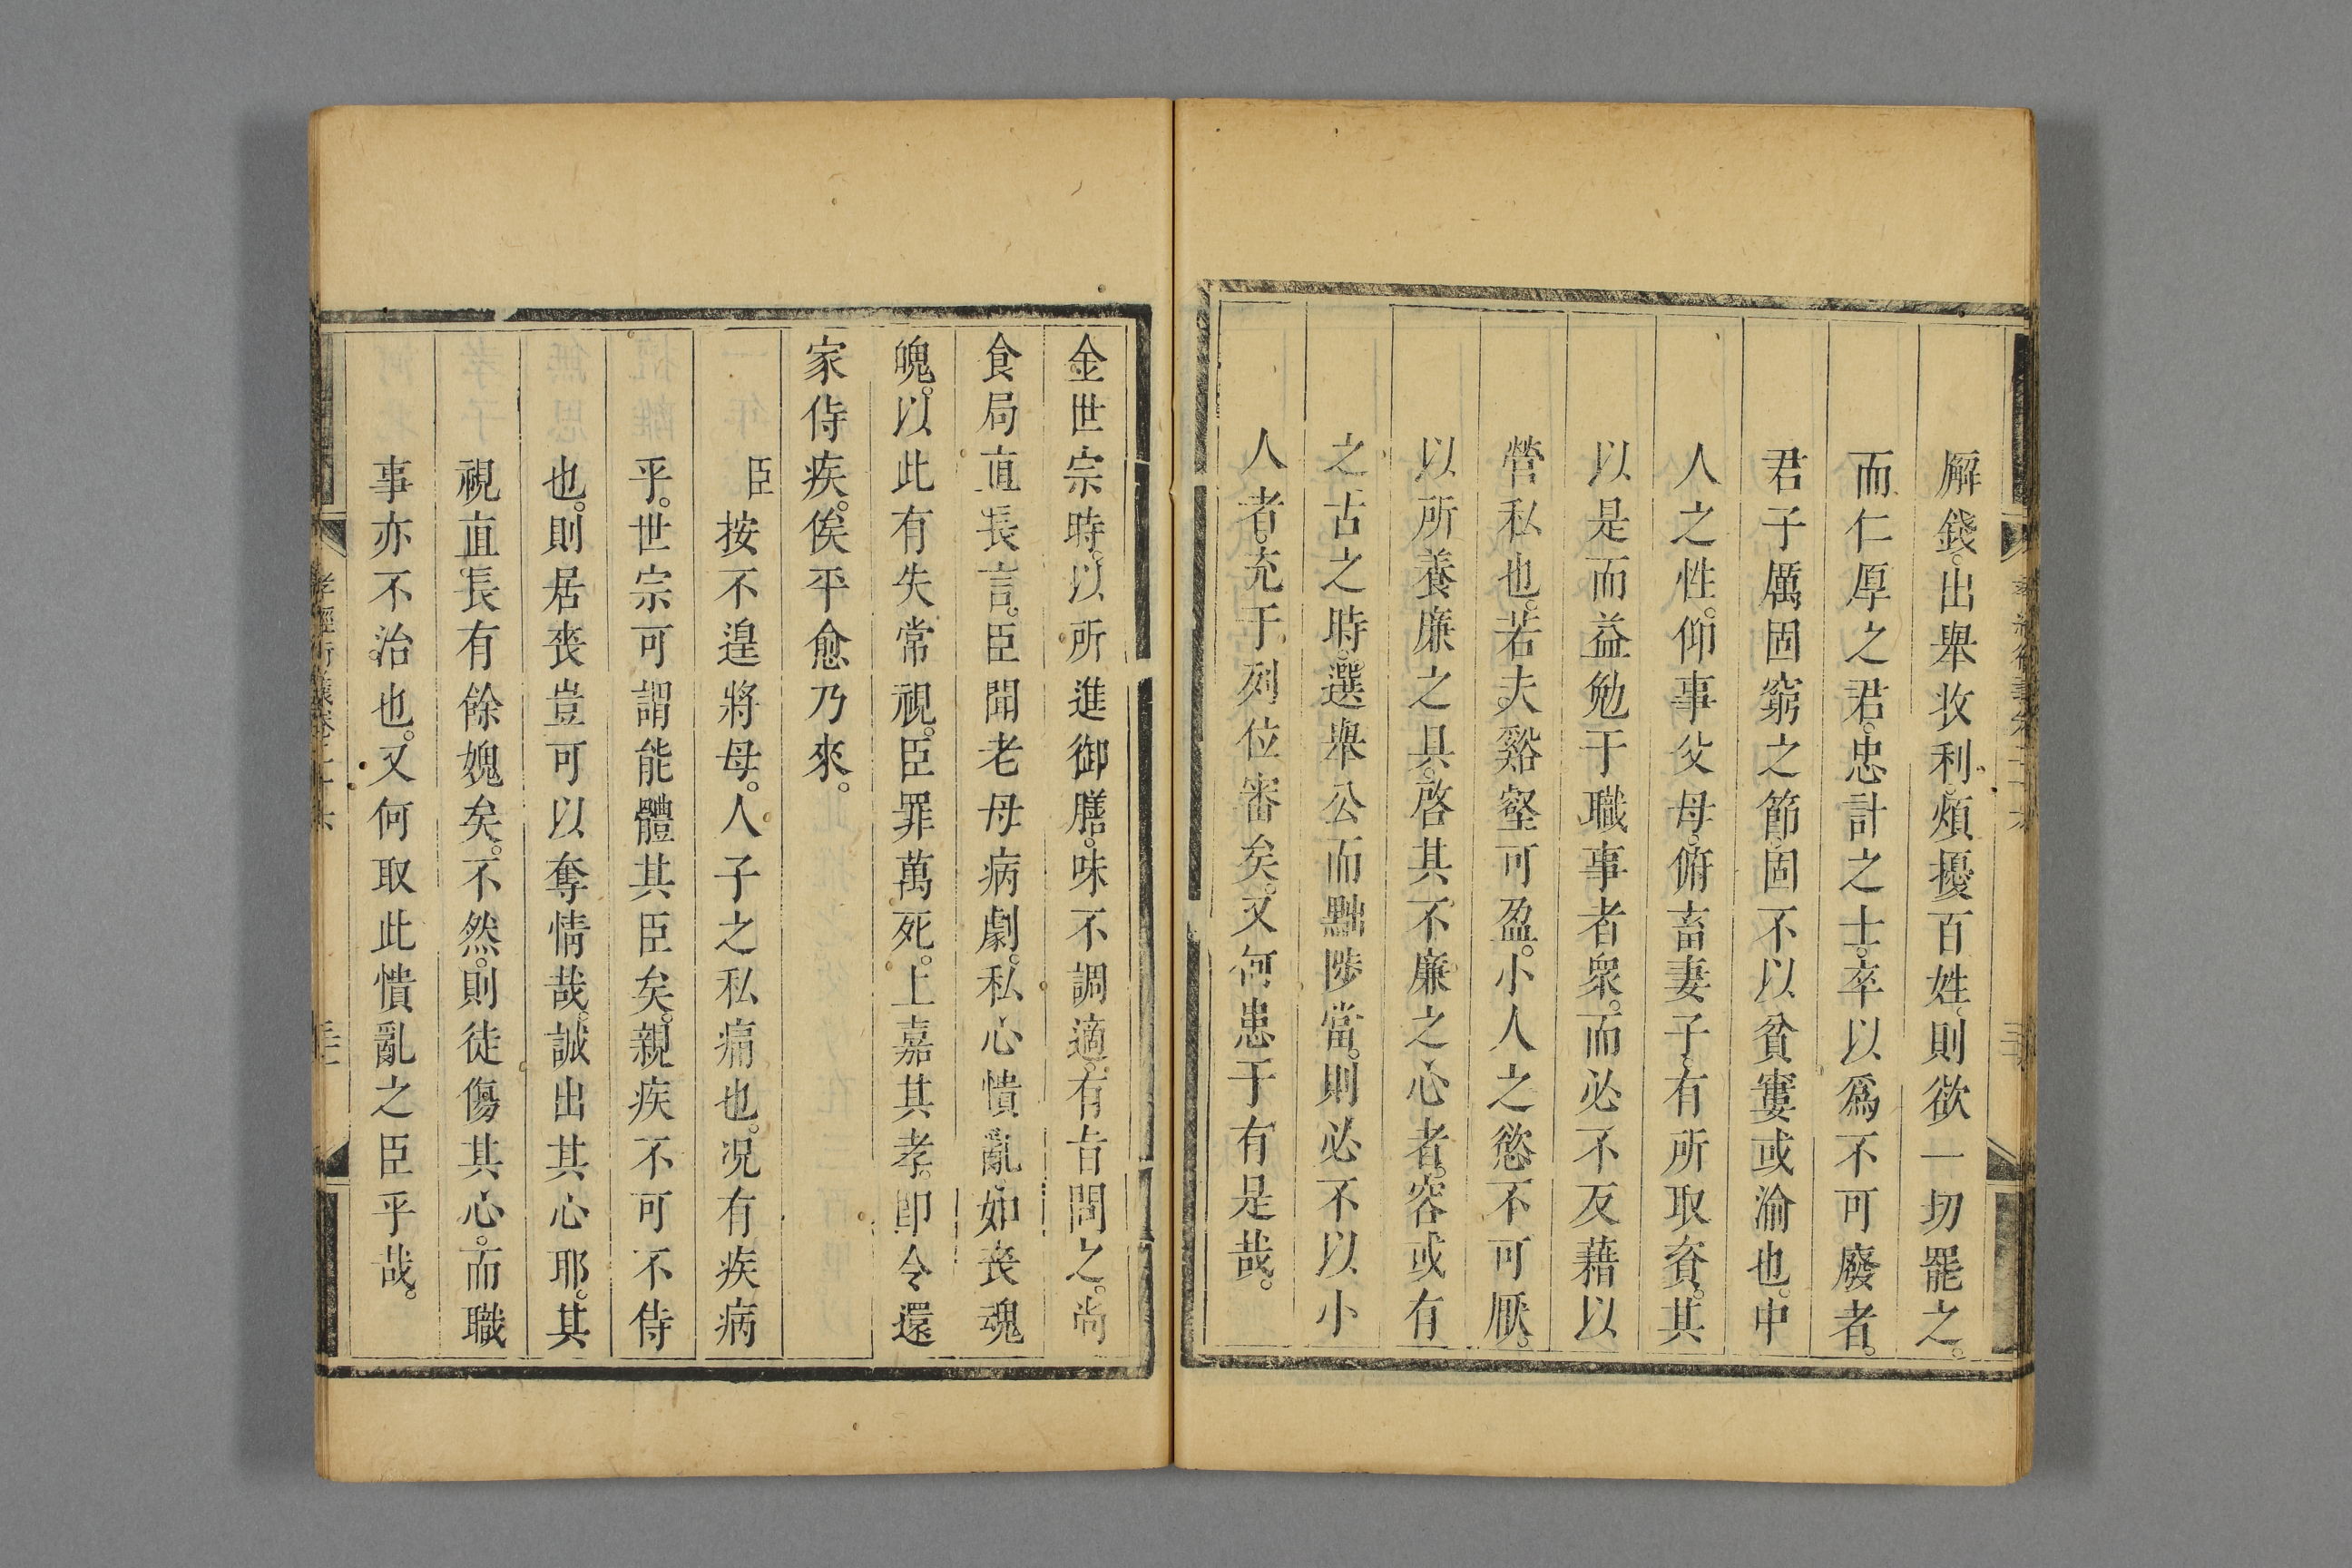 解錢。出舉收利。煩擾百姓。則欲一切罷之。
而仁厚之君。忠計之士。卒以爲不可廢者。
君子厲固窮之節。固不以貧寠或渝也。中
人之性。仰事父母。俯畜妻子。有所取資。其
以是而益勉于職事者衆。而必不反藉以
營私也。若夫谿壑可盈。小人之慾不可厭。
以所養廉之具。啓其不廉之心者。容或有
之。古之時。選舉公而黜陟當。則必不以小
人者。充于列位審矣。又何患于有是哉。
金世宗時。以所進御膳。味不調適。有旨問之。尚
食局直長言。臣聞老母病劇。私心憒亂。如喪魂
魄。以此有失常視。臣罪萬死。上嘉其孝。卽令還
家侍疾。俟平愈乃來。
臣按不遑將母。人子之私痛也。况有疾病
乎。世宗可謂能體其臣矣。親疾不可不侍
也。則居喪豈可以奪情哉。誠出其心耶。其
視直長有餘媿矣。不然。則徒傷其心。而職
事亦不治也。又何取此憒亂之臣乎哉。
孝經衍義卷二十六